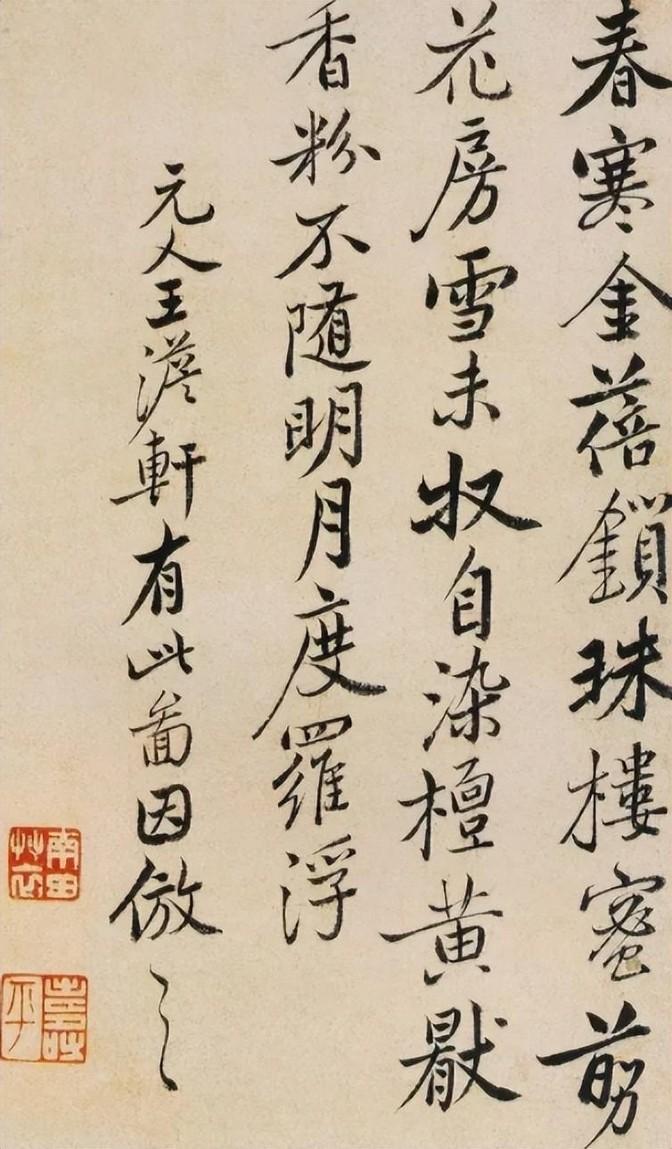 春寒金蓓鎖珠樓蜜剪
花房雪未収自染檀黃猒
香粉不随明月度羅浮
元人王澹軒有此啚因倣之
南田艸衣
壽平